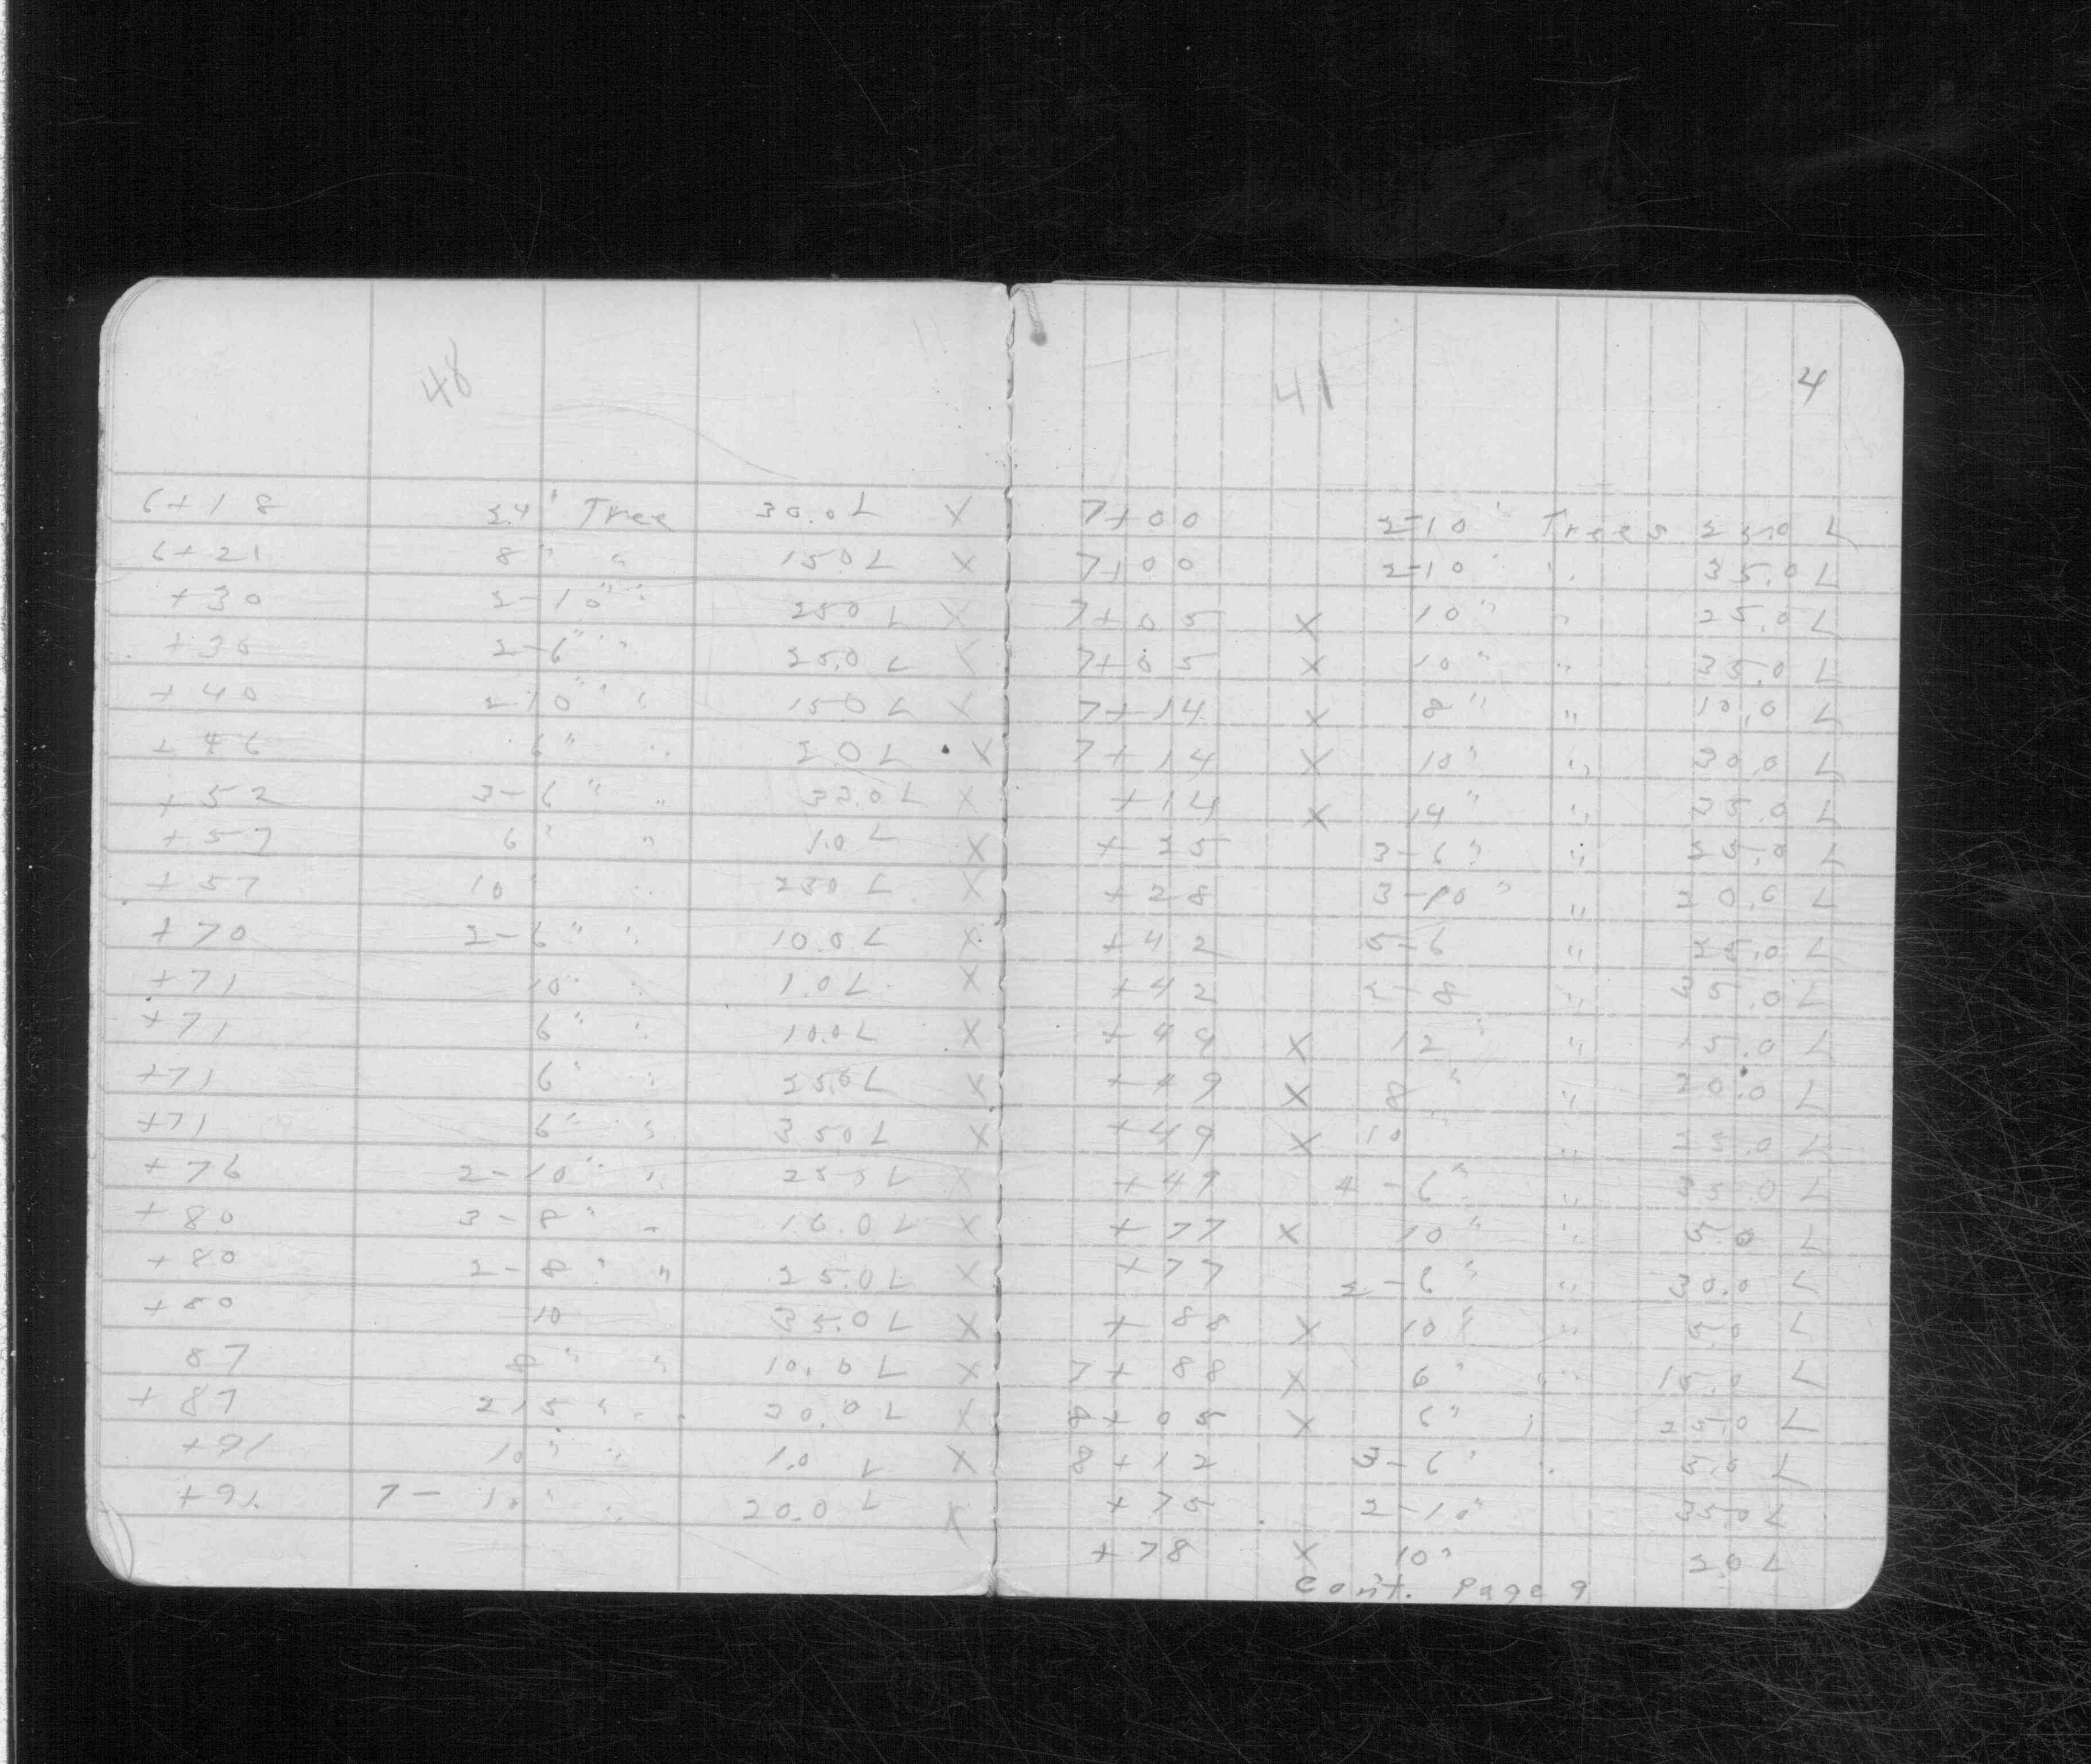 48
6+18 24" Tree 30.0 L X
6+21 8" " 15.0 L X
+30 2-10" " 25.0 L X
+35 2-6" " 25.0 L X
+40 2-10" " 15.0 L X
+46 6" " 2.0 L X
+52 3-6" " 33.0 L X
+57 6" " 1.0 L X
+57 10" " 23.0 L X
+70 2-6" " 10.0 L X
+71 10" " 1.0 L X
+71 6" " 10.0 L X
+71 6" " 25.0 L X
+71 6" " 35.0 L X
+76 2-10" " 25.0 L X
+80 3-8" " 10.0 L X
+80 2-8" " 25.0 L X
+80 10 35.0 L X
87 8" " 10.0 L X
+87 " " L X
+91 10" " 1.0 L X
+91 7-10" " 20.0 L X
41 4
7+00 2-10" Trees L
7+00 2-10" " 35.0 L
7+05 X 10" " 25.0 L
7+05 X 10" " 35.0 L
7+14 X 8" " 10.0 L
7+14 X 10" " 30.0 L
+14 X 14" " 35.0 L
+25 3-6" " 25.0 L
+28 3-10" " 20.0 L
+42 5-6 " 25.0 L
+42 2-8 " 35.0 L
+49 X 12" " 15.0 L
+49 X 8" " 20.0 L
+49 X 10" " 25.0 L
+49 4-6" " 35.0 L
+77 X 10" " 5.0 L
+77 2-6" " 30.0 L
+88 X 10" " 5.0 L
7+88 X 6" " 15.0 L
8+05 X 6" " 25.0 L
8+12 3-6" " 5.0 L
+75 2-10" 35.0 L
+78 X 10" 2.0 L
Con't. Page 9